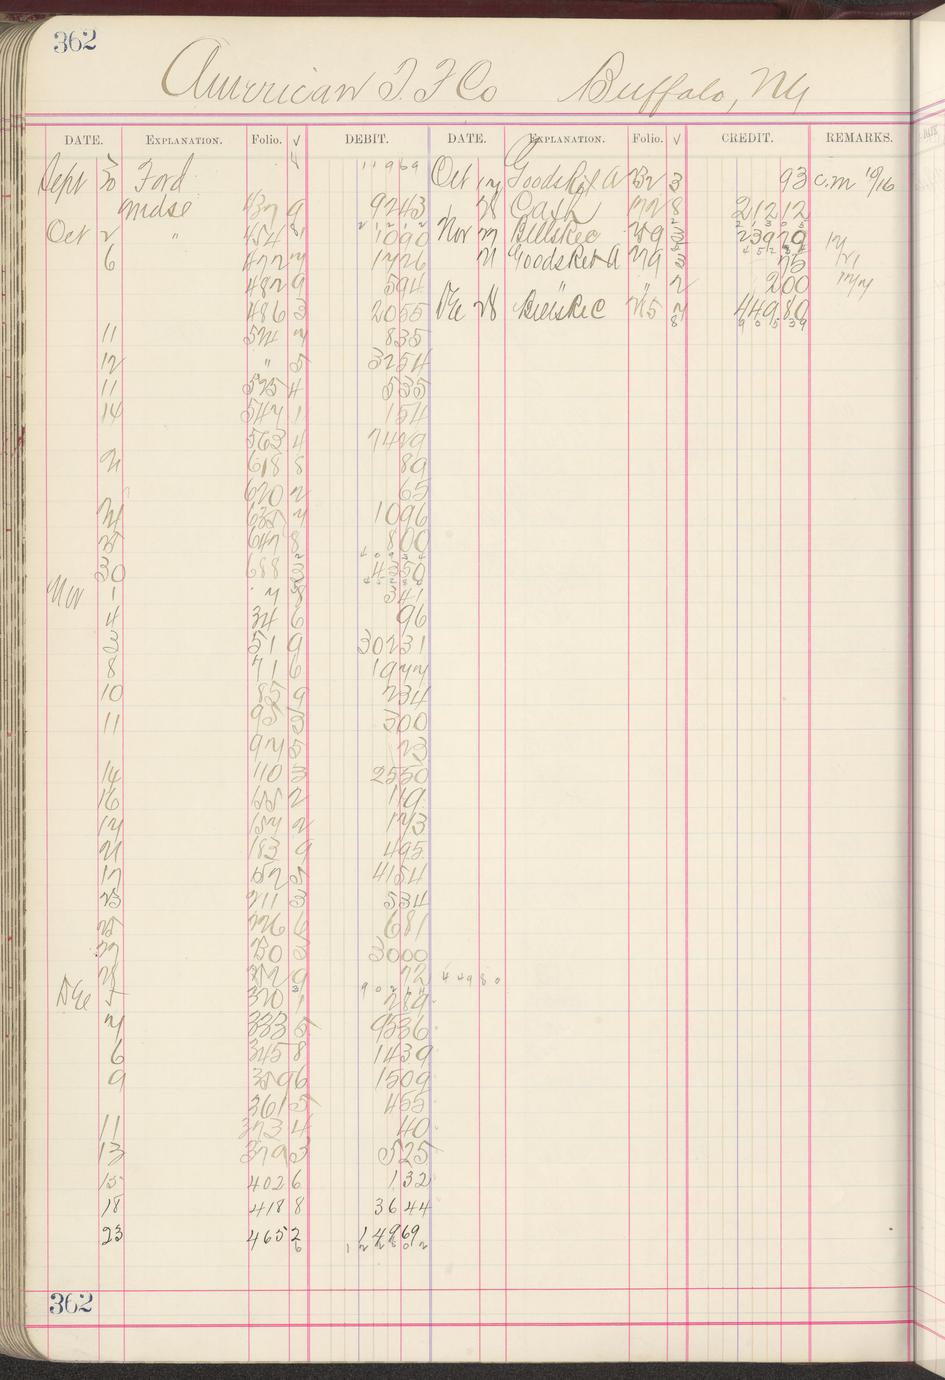 362
American I. F Co Buffalo, Ny
DATE. EXPLANATION. Folio. √ DEBIT. DATE. EXPLANATION. Folio. √ CREDIT. REMARKS.
Sept 30 Ford 4 11969 Oct 17 Goods Ret A 132 3 93 c.m 10/16
Mdse 437 9 9243 28 Cash 172 8 21212
Oct 2 " 454 1090 Nov 7 Bills Rec 239 29
6 472 7 1726 21 Goods Ret A 3 75
482 9 594 " " 2 200
486 3 2055 Dec 28 Bills Rec 215 7 44980
11 524 7 835
12 " 5 3254
11 525 4 535
14 547 1 154
563 4 7429
21 618 8 89
620 2 65
24 635 7 1096
25 647 8 800
30 688 3 4350
Nov 1 7 8 341
4 34 6 96
3 51 9 30231
8 71 6 1977
10 85 9 234
11 95 3 300
97 5 23
14 110 3 2550
16 155 2 119
17 157 2 173
21 183 9 495
17 152 5 4154
23 211 3 534
25 226 6 681
27 230 5 3000
28 252 9 72 44980
Dec 5 320 1 289
7 333 5 9536
6 345 8 1439
9 359 6 1509
361 5 455
11 373 4 40
13 379 3 525
15 402 6 132
18 418 8 3644
23 465 2 14969
6 122802
362